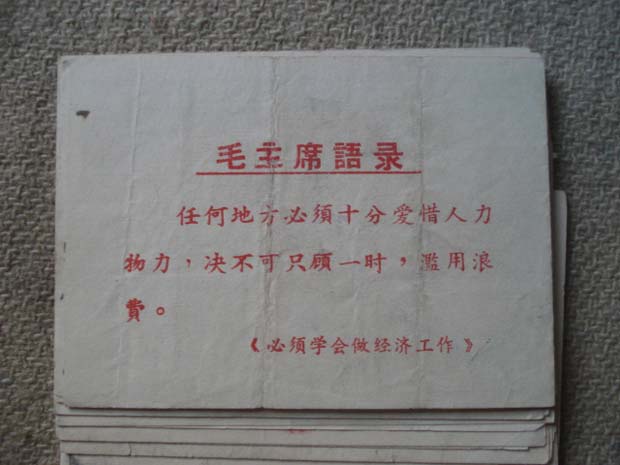 毛主席語录
任何地方必須十分爱惜人力
物力，决不可只顾一时，濫用浪
費。
《必须学会做经济工作》